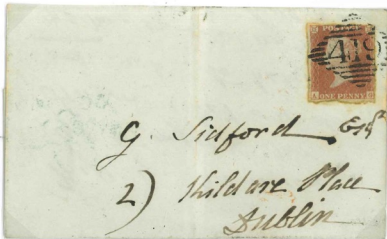 POSTAGE
419
ONE PENNY
G. Sidford Esqr
2) Kildare Place
Dublin